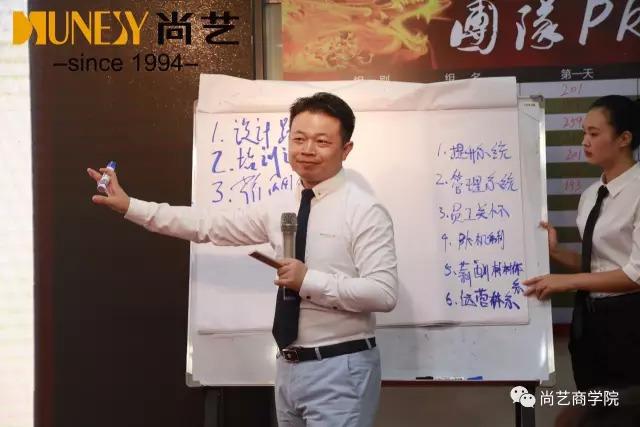 MUNESY 尚艺
–since 1994–
團隊PK
组别
组名
第一天
201
259
201
193
1. 设计
2. 培训
3.
1. 提升系统
2. 管理系统
3. 员工关怀
4. 机制
5. 薪酬
6. 运营体系
尚艺商学院